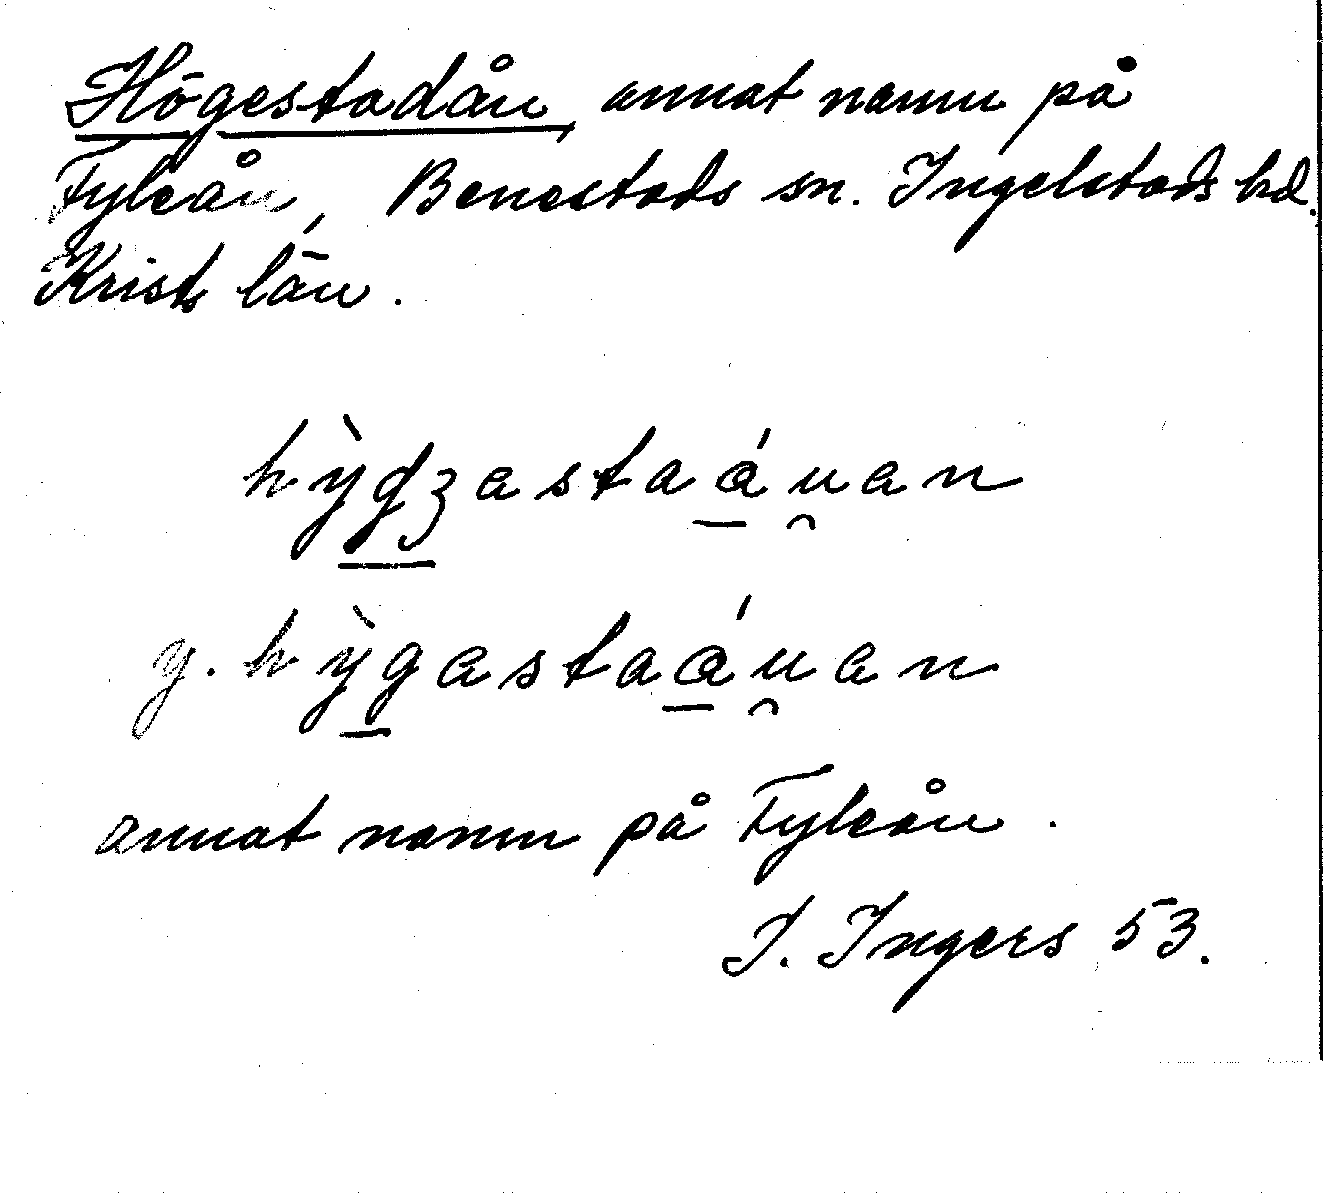 Högestadån, annat namn på
Fyleån, Benestads sn. Ingelstads hd.
Krist. län.
hỳgʒastaá̲u̯an
y. hỳgastaá̲u̯an
annat namn på Fyleån.
I. Ingers 53.